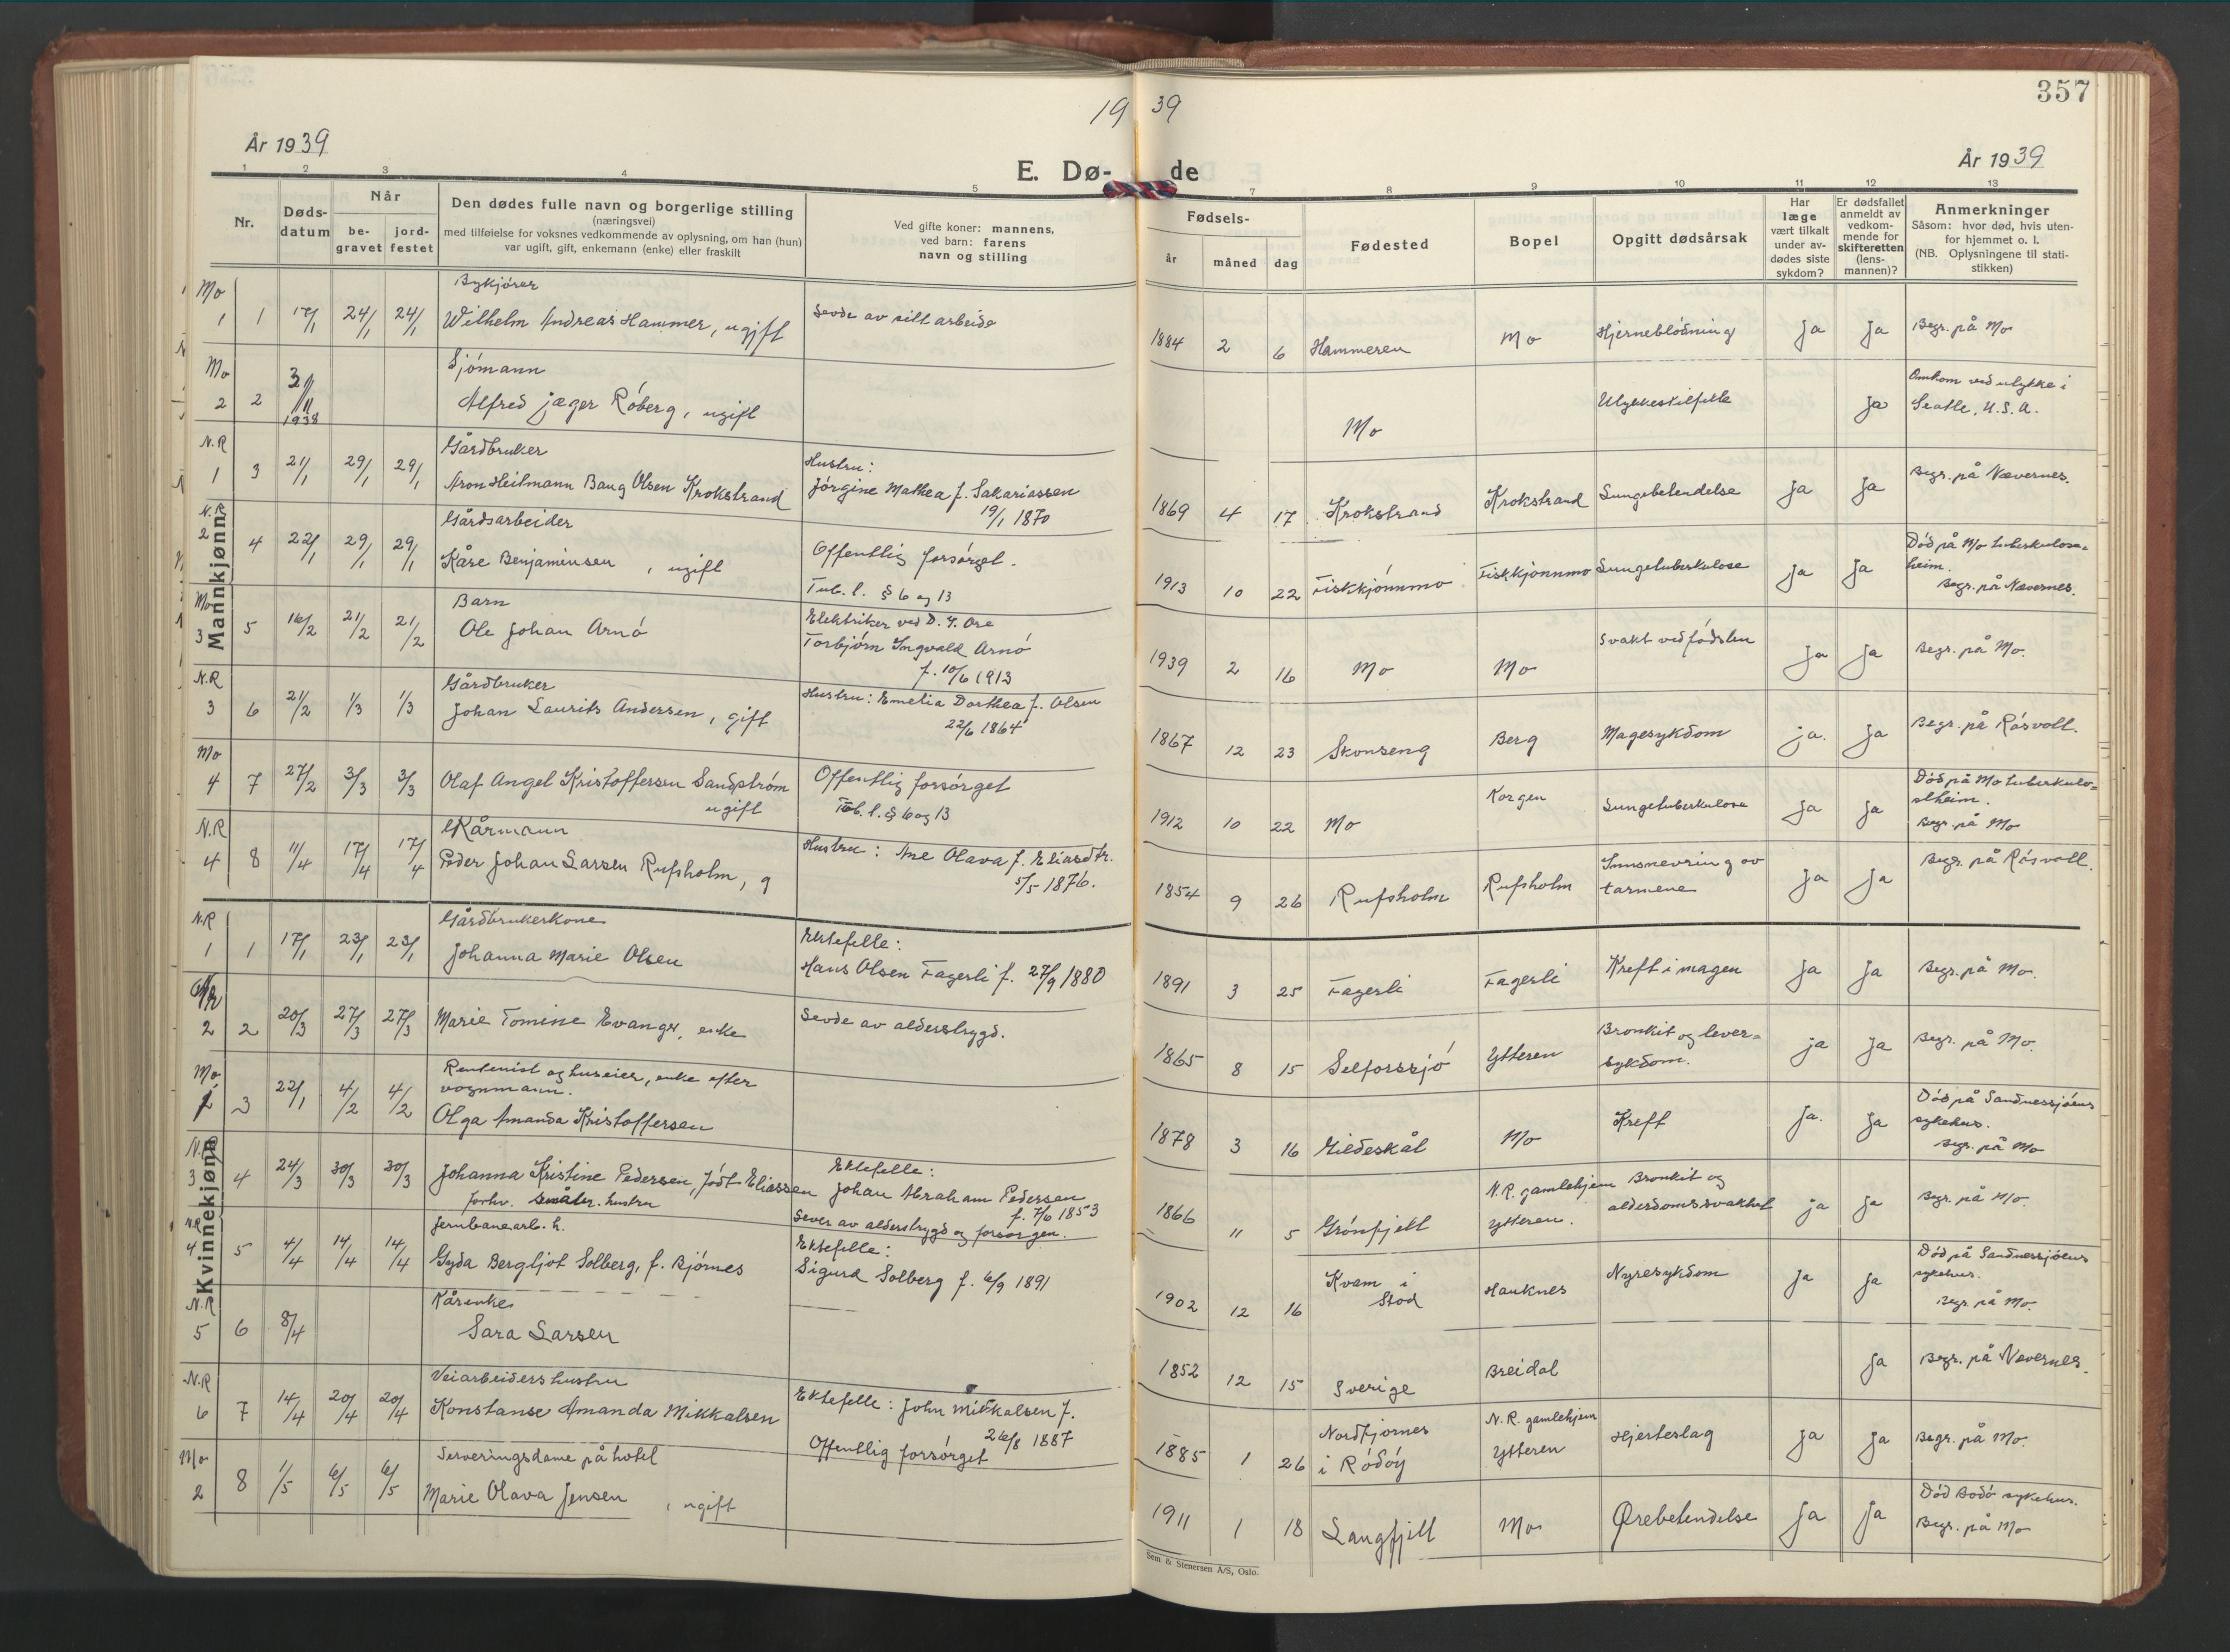 357
19 39
År 1939
År 1939
E. Dø- de
1 2 3 4 5 7 8 9 10 11 12 13
Nr.
Døds-
datum
Når
be-
gravet
jord-
festet
Den dødes fulle navn og borgerlige stilling
(næringsvei)
med tilføielse for voksnes vedkommende av oplysning, om han (hun)
var ugift, gift, enkemann (enke) eller fraskilt
Ved gifte koner: mannens,
ved barn: farens
navn og stilling
Fødsels-
år måned dag
Fødested
Bopel
Opgitt dødsårsak
Har
læge
vært tilkalt
under av-
dødes siste
sykdom?
Er dødsfallet
anmeldt av
vedkom-
mende for
skifteretten
(lens-
mannen)?
Anmerkninger
Såsom: hvor død, hvis uten-
for hjemmet o. l.
(NB. Oplysningene til stati-
stikken)
Mannkjønn
Mo Bykjører
1 1 17/1 24/1 24/1 Wilhelm Andreas Hammer, ugift Levde av sitt arbeide 1884 2 6 Hammeren Mo Hjerneblødning Ja Ja Begr. på Mo
Mo Sjømann Omkom ved ulykke i
2 2 3/11 1938 Alfred Jæger Røberg, ugift Mo Ulykkestilfelle Ja Seatle, U.S.A.
N.R Gårdbruker Hustru:
1 3 21/1 29/1 29/1 Aron Heitmann Baug Olsen Krokstrand Jørgine Mathea f. Sakariassen 1869 4 17 Krokstrand Krokstrand Lungebetendelse Ja Ja Begr. på Nævernes.
19/1 1870
N.R Gårdsarbeider Død på Mo tuberkulose-
2 4 22/1 29/1 29/1 Kåre Benjaminsen, ugift Offentlig forsørget. 1913 10 22 Fiskkjønnmo Fiskkjønnmo Lungetuberkulose Ja Ja heim.
Tub. l. § 6 og 13 Begr. på Nævernes.
Mo Barn Elektriker ved D. Y. Ore
3 5 16/2 21/2 21/2 Ole Johan Arnø Torbjørn Ingvald Arnø 1939 2 16 Mo Mo Svakt ved fødslen Ja Ja Begr. på Mo.
f. 10/6 1913
N.R Gårdbruker Hustru: Emelia Dorthea f. Olsen
3 6 21/2 1/3 1/3 Johan Laurits Andersen, gift 22/6 1864 1867 12 23 Skonseng Berg Magesykdom ja. Ja Begr. på Røsvoll.
Mo Død på Mo tuberkulo-
4 7 27/2 3/3 3/3 Olaf Angel Kristoffersen Sandstrøm Offentlig forsørget 1912 10 22 Mo Korgen Lungetuberkulose Ja Ja seheim.
ugift Tub. l. § 6 og 13 Begr. på Mo
N.R Kårmann Hustru: Ane Olava f. Eliasdtr.
4 8 11/4 17/4 17/4 Peder Johan Larsen Rufsholm, g 5/5 1876. 1854 9 26 Rufsholm Rufsholm Innsnevring av tarmene Ja Ja Begr. på Røsvoll.
Kvinnekjønn
N.R Gårdbrukerkone Ektefelle:
1 1 17/1 23/1 23/1 Johanna Marie Olsen Hans Olsen Fagerli f. 27/9 1880 1891 3 25 Fagerli Fagerli Kreft i magen Ja Ja Begr. på Mo.
2 2 20/3 27/3 27/3 Marie Tomine Evanger, enke Levde av alderstrygd. 1865 8 15 Selforssjø Ytteren Bronkit og lever-
sykdom. ja Ja Begr. på Mo.
Mo Rentenist og huseier, enke efter
vognmann. Død på Sandnessjøens
1 3 22/1 4/2 4/2 Olga Amanda Kristoffersen 1878 3 16 Gildeskål Mo Kreft Ja. Ja sykehus.
Begr. på Mo
N.R Ektefelle:
3 4 24/3 30/3 30/3 Johanna Kristine Pedersen, født Eliassen Johan Abraham Pedersen 1866 11 5 Grønfjell N.R. gamlehjem Ytteren. Bronkit og alderdomssvakhet ja Ja Begr. på Mo.
forhv. småbr. hustru f. 7/6 1853
Lever av alderstrygd og forsorgen.
N.R Jernbanearb. h. Ektefelle: Død på Sandnessjøens
4 5 4/4 14/4 14/4 Gyda Bergljot Solberg, f. Bjørnes Sigurd Solberg f. 6/9 1891 1902 12 16 Kvam i Stod Hauknes Nyresykdom Ja Ja sykehus.
Begr. på Mo.
N.R Kårenke
5 6 8/4 Sara Larsen 1852 12 15 Sverige Breidal Ja Begr. på Nævernes.
N.R Veiarbeiders hustru
6 7 14/4 20/4 20/4 Konstanse Amanda Mikkalsen Ektefelle: John Mikkalsen f. 26/8 1887 1885 1 26 Nordfjornes i Rødøy N.R. gamlehjem Ytteren Hjerteslag Ja Ja Begr. på Mo.
Offentlig forsørget
Mo Serveringsdame på hotel Død Bodø sykehus.
2 8 1/5 6/5 6/5 Marie Olava Jensen, ugift 1911 1 18 Langfjell Mo Ørebetendelse Ja Ja Begr. på Mo
Sem & Stenersen A/S, Oslo.